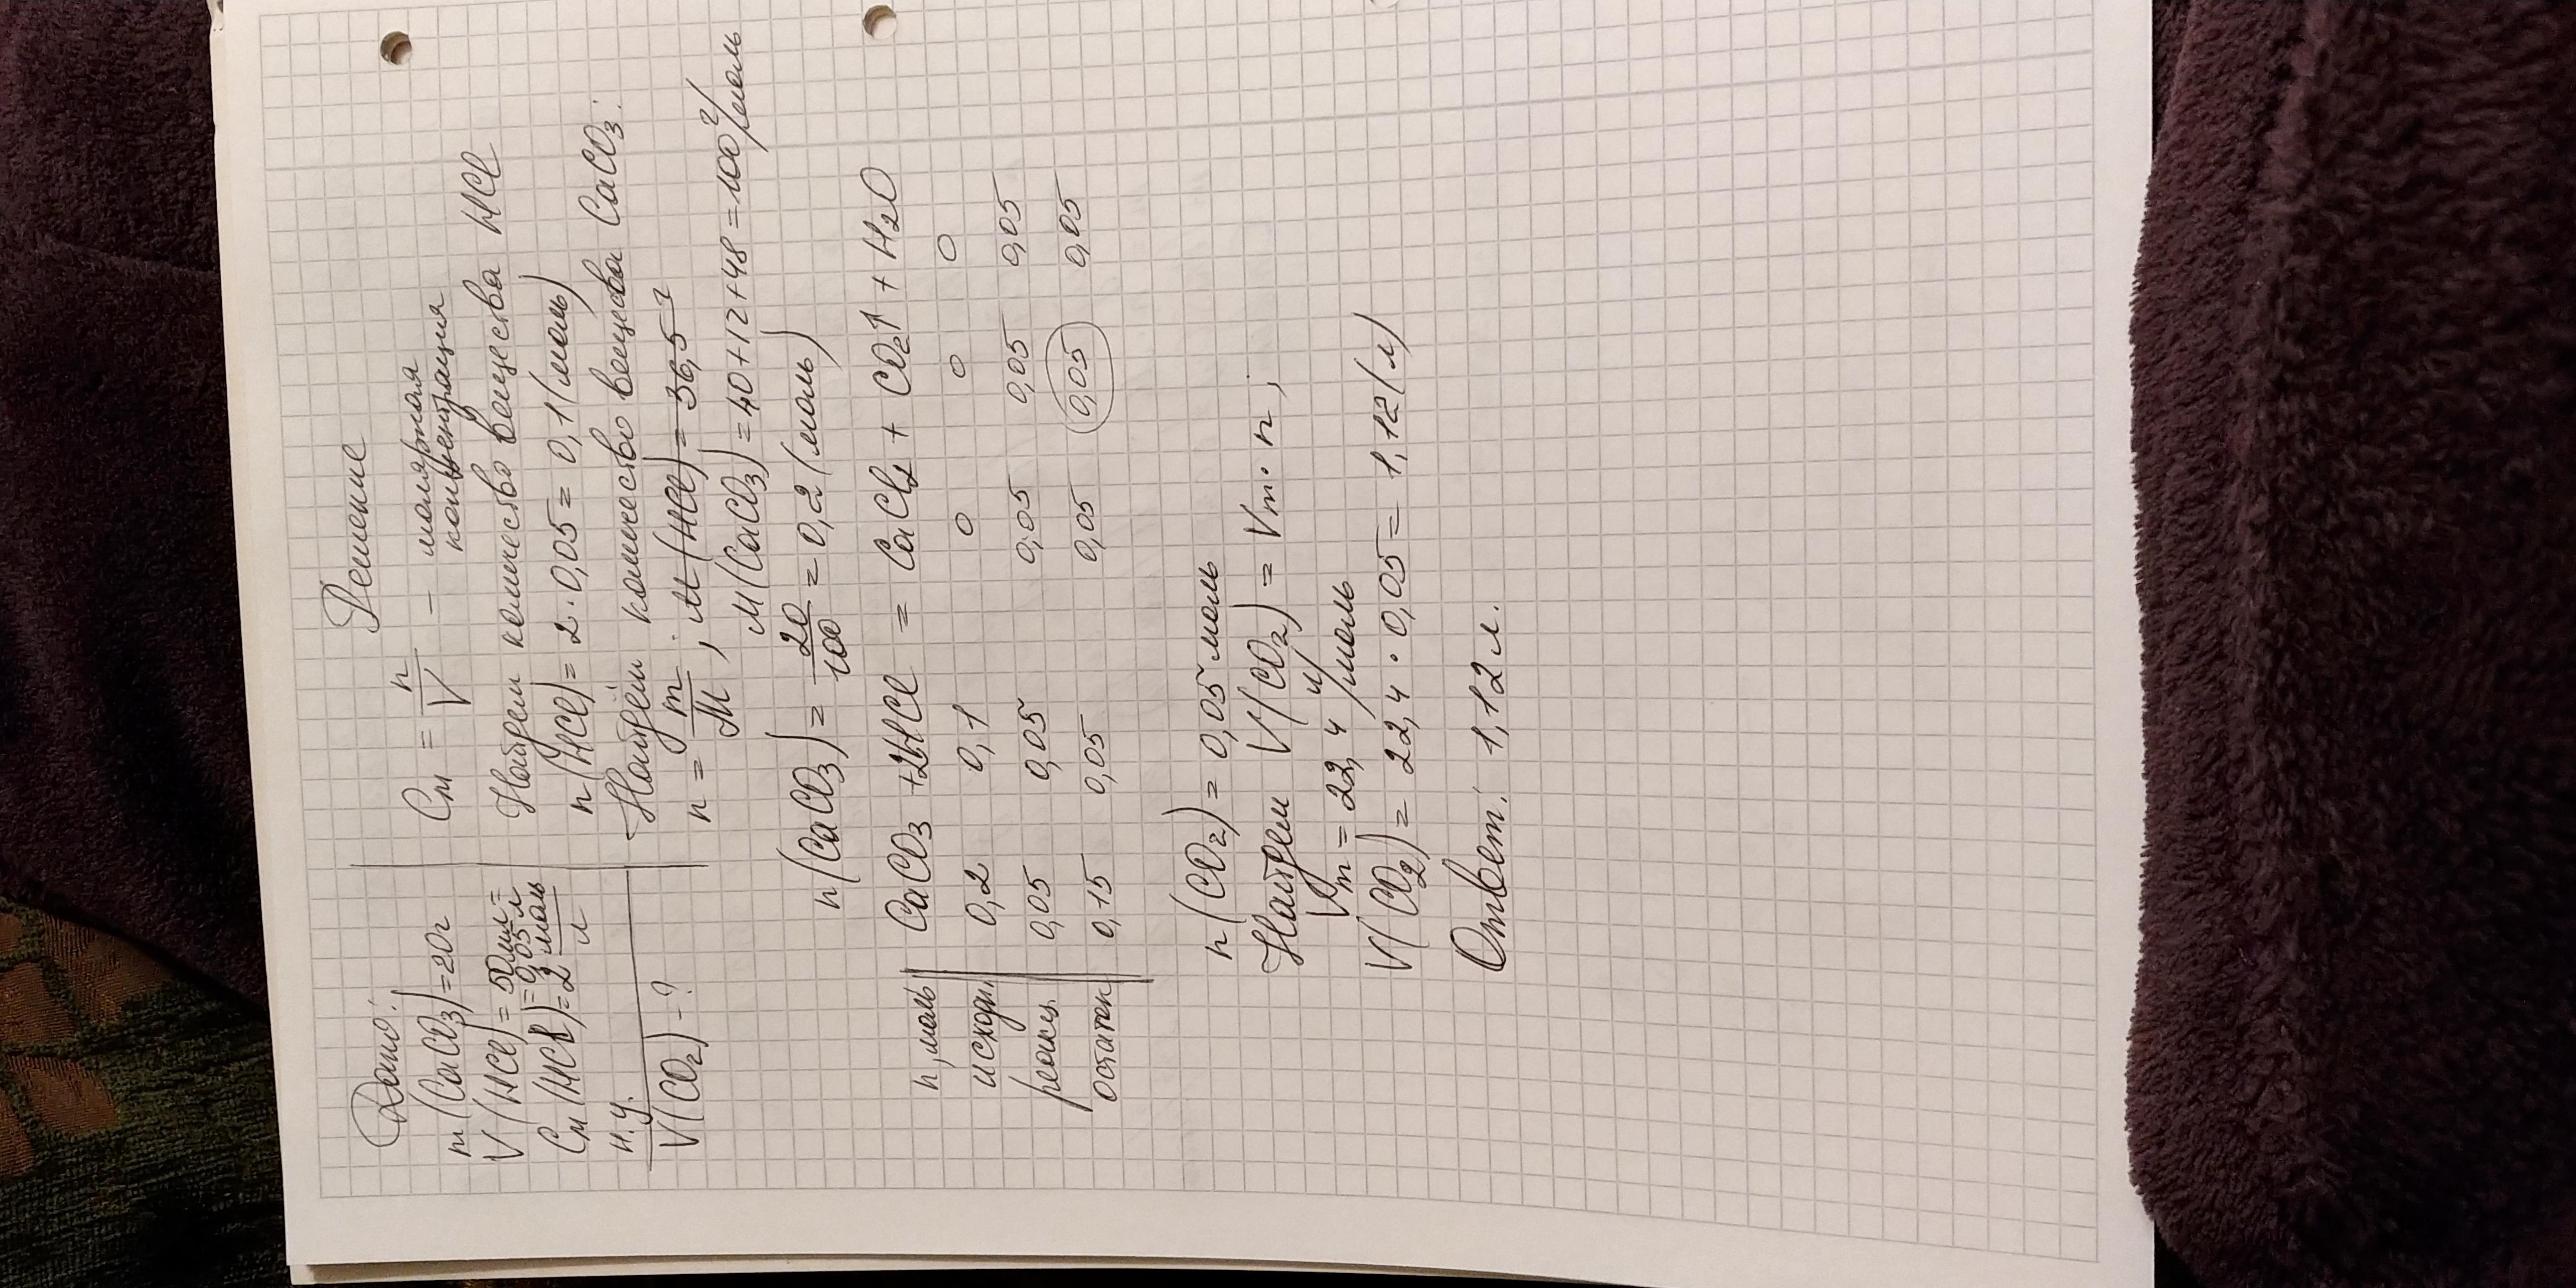 Дано:
m(CaCO₃)=20г
V(HCl)=50мл=
=0,05л
Cм(HCl)=2 моль/л
н.у.
V(CO₂)-?
Решение
Cм = n/V – молярная
концентрация
Найдем количество вещества HCl
n(HCl)=2·0,05=0,1(моль)
Найдём количество вещества CaCO₃:
n = m/M; M(HCl)=36,5 г
M(CaCO₃)=40+12+48=100 г/моль
n(CaCO₃)= 20/100 =0,2(моль)
n, моль CaCO₃ +2HCl = CaCl₂ + CO₂↑ + H₂O
исходн. 0,2 0,1 0 0 0
реакц. 0,05 0,05 0,05 0,05 0,05
остаток 0,15 0,05 0,05 0,05 0,05
n(CO₂)=0,05 моль
Найдем V(CO₂)=Vm·n;
Vm=22,4 л/моль
V(CO₂)=22,4·0,05=1,12(л)
Ответ: 1,12 л.